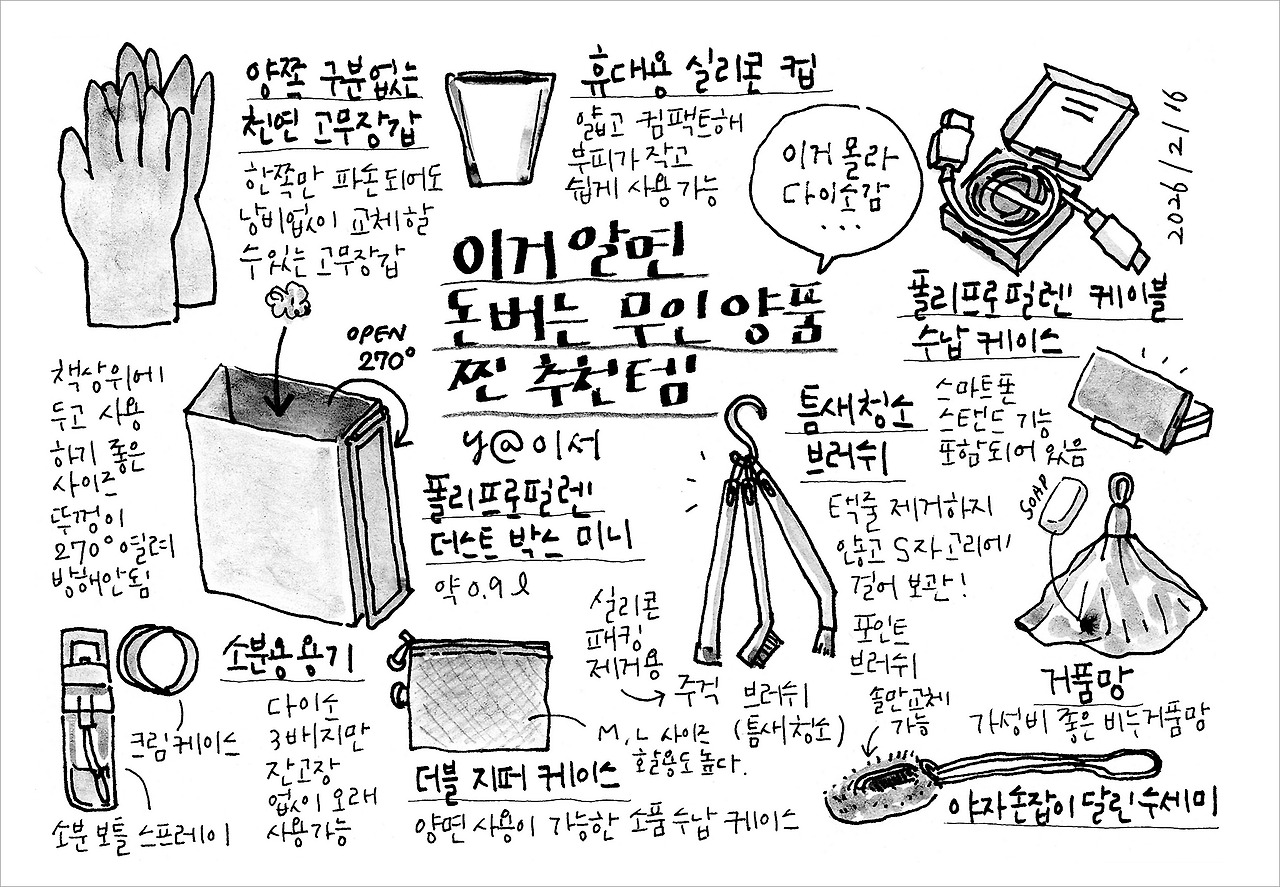 양쪽 구분없는
천연 고무장갑
한쪽만 파손되어도
낭비없이 교체할
수 있는 고무장갑
휴대용 실리콘 컵
얇고 컴팩트해
부피가 작고
쉽게 사용 가능
이거 몰라
다이소감
...
2026/2/16
폴리프로필렌 케이블
수납 케이스
스마트폰
스탠드 기능
포함되어 있음
이거 알면
돈버는 무인양품
찐 추천템
y@이세
OPEN
270°
책상위에
두고 사용
하기 좋은
사이즈
뚜껑이
270° 열려
방해안됨
폴리프로필렌
더스트 박스 미니
약 0.9ℓ
틈새청소
브러쉬
택줄 제거하지
않고 S자 고리에
걸어 보관!
실리콘
패킹
제거용
주걱
브러쉬
(틈새청소)
포인트
브러쉬
SOAP
거품망
가성비 좋은 비누거품망
소분용 용기
다이소
3배지만
잔고장
없이 오래
사용가능
크림케이스
소분 보틀 스프레이
M, L 사이즈
활용도 높다.
더블 지퍼 케이스
양면 사용이 가능한 소품 수납 케이스
솔만교체
가능
야자 손잡이 달린 수세미